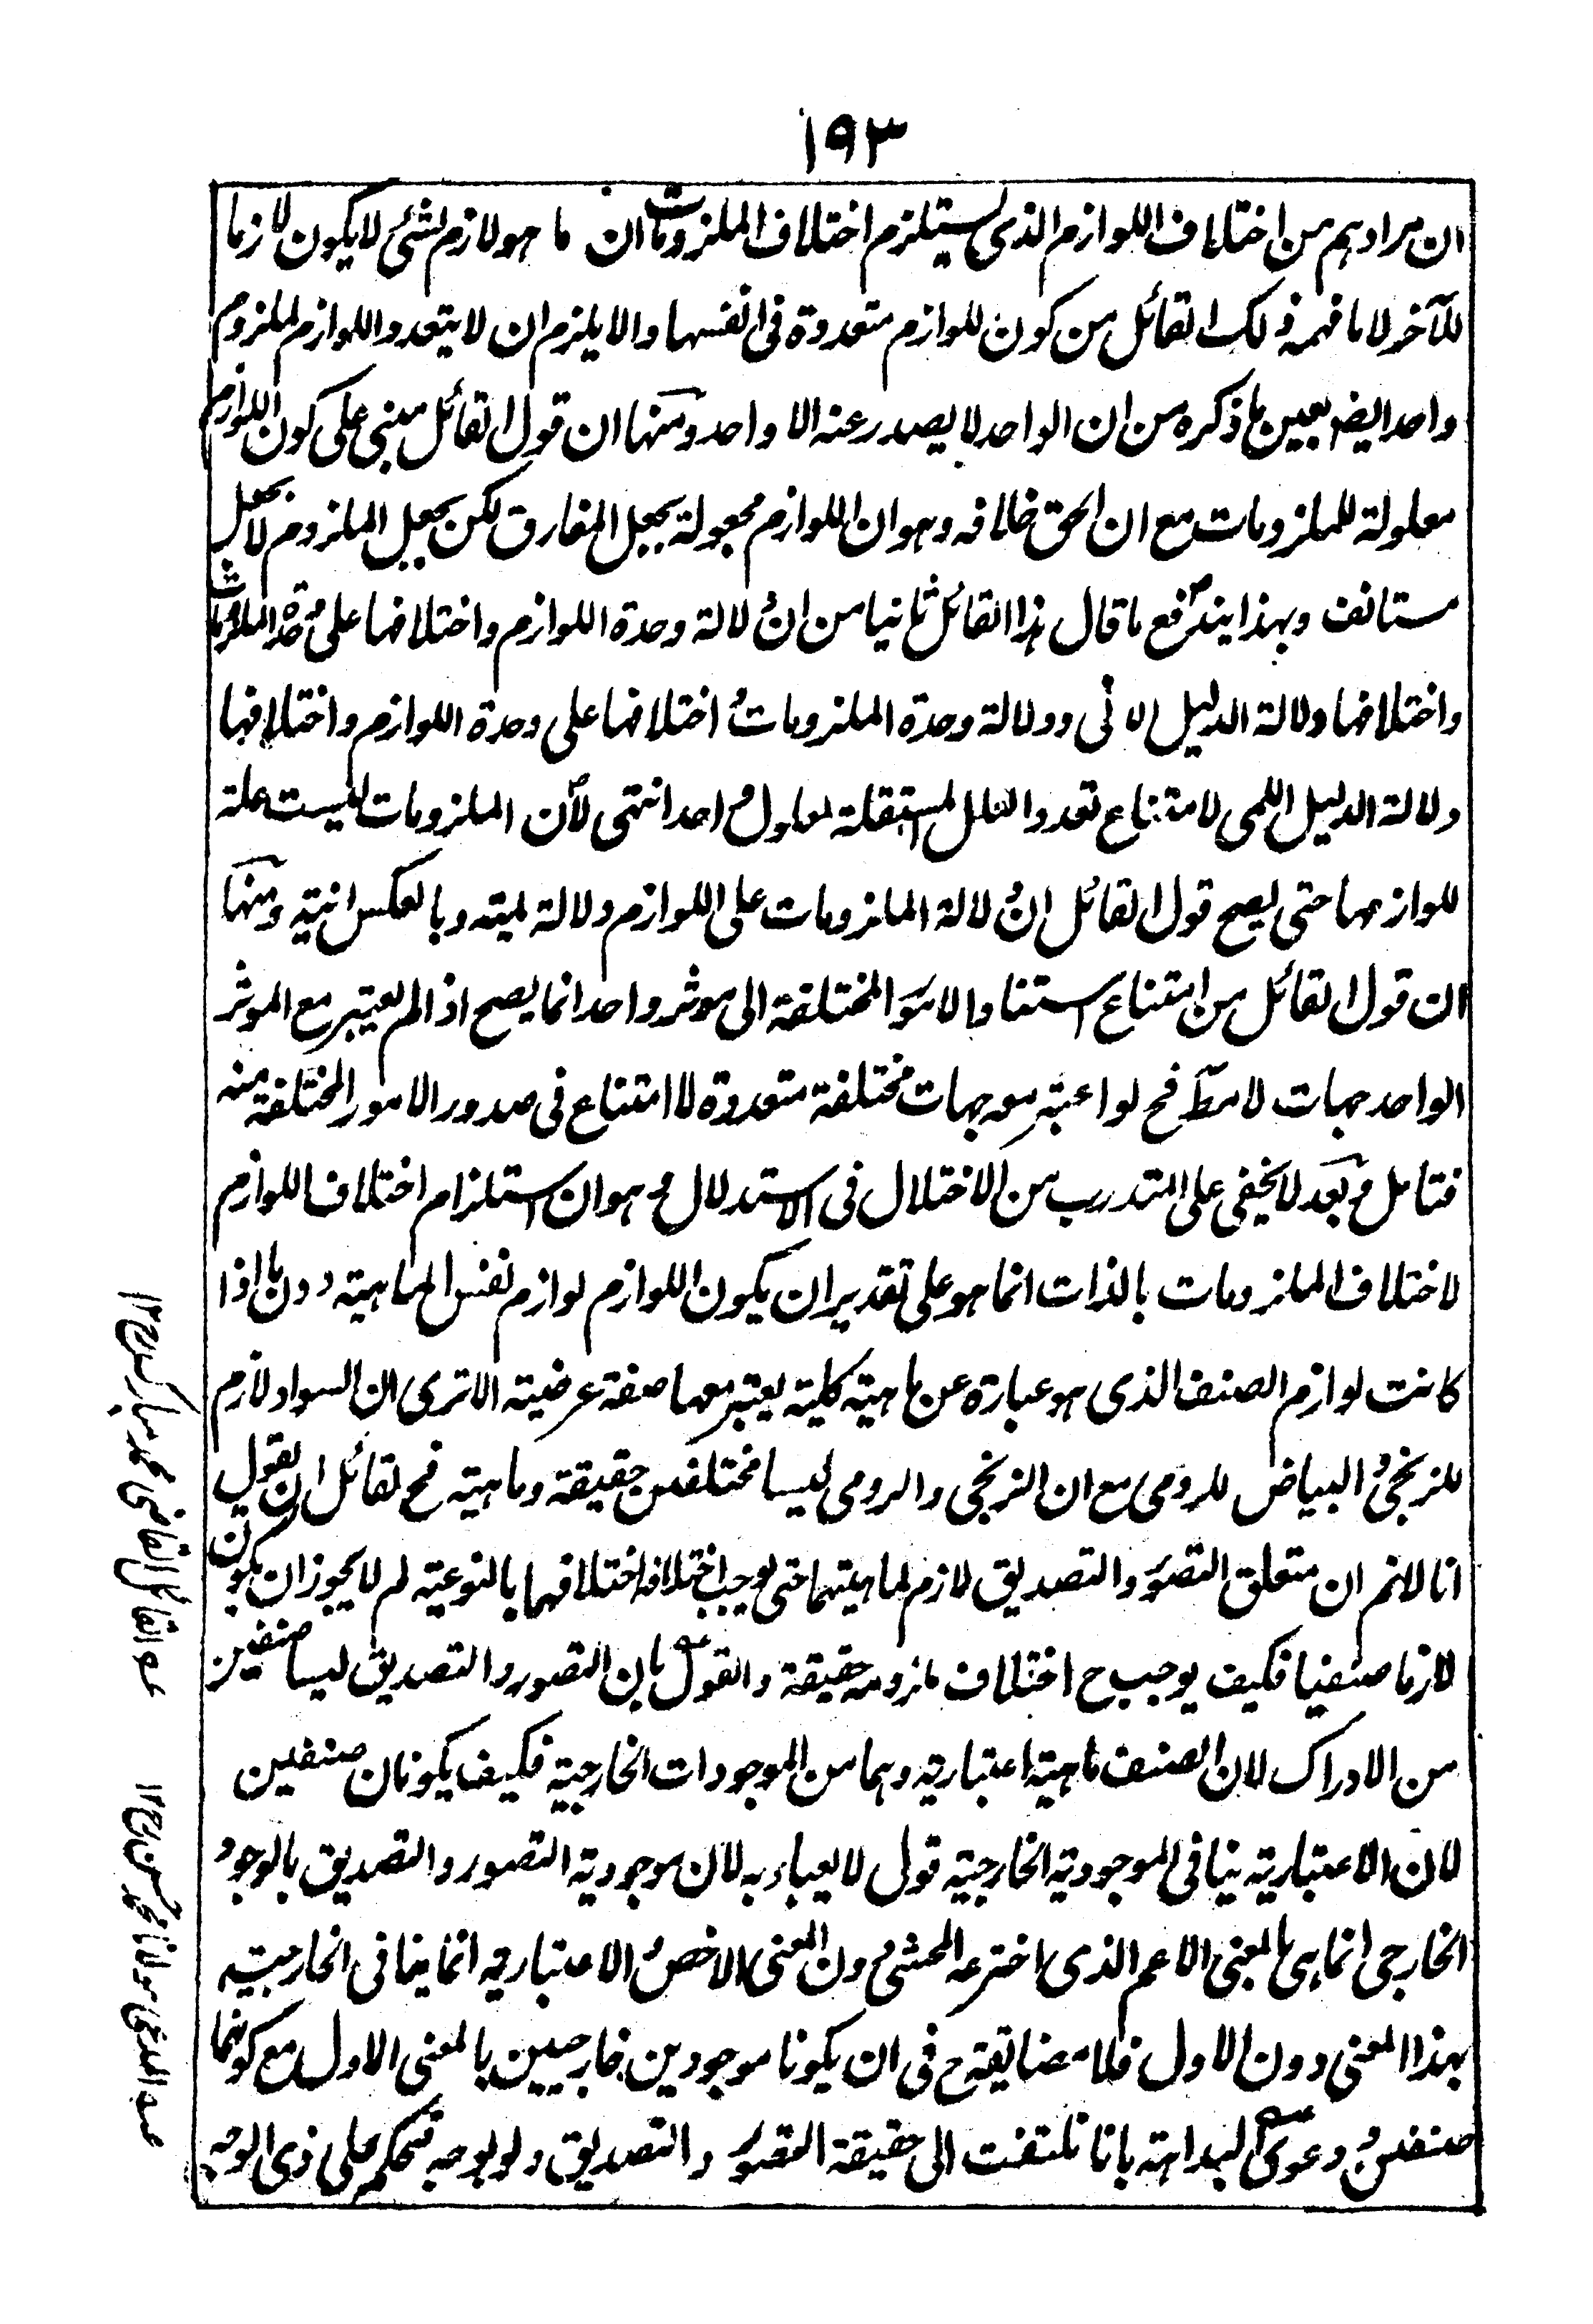 ١٩٣
ان مرادهم من اختلاف اللوازم الذى يستلزم اختلاف الملزومات ان ما هو لازم لشئ لا يكون لازما
للآخر لا ما فهمه ذلك القائل من كون اللوازم متعددة فى انفسها والا يلزم ان لا يتعدد اللوازم لملزوم
واحد ايضا بعين ما ذكره من ان الواحد لا يصدر عنه الا واحد ومنها ان قول القائل مبنى على كون اللوازم
معلولة للملزومات مع ان الحق خلافه وهو ان اللوازم مجعولة بجعل المفارق لكن بجعل الملزوم لا بجعل
مستانف وبهذا يندفع ما قال هذا القائل ثانيا من ان دلالة وحدة اللوازم واختلافها على وحدة الملزومات
واختلافها دلالة الدليل الانى ودلالة وحدة الملزومات واختلافها على وحدة اللوازم واختلافها
دلالة الدليل اللمى لامتناع تعدد العلل المستقلة لمعلول واحد انتهى لان الملزومات ليست علة
للوازمها حتى يصح قول القائل ان دلالة الملزومات على اللوازم دلالة لمية وبالعكس انية ومنها
ان قول القائل من امتناع استناد الامور المختلفة الى موثر واحد انما يصح اذا لم يعتبر مع الموثر
الواحد جهات لا مط فح لو اعتبر معه جهات مختلفة متعددة لا امتناع فى صدور الامور المختلفة منه
فتامل وبعد لا يخفى على المتدرب من الاختلال فى الاستدلال وهو ان استلزام اختلاف اللوازم
لاختلاف الملزومات بالذات انما هو على تقدير ان يكون اللوازم لوازم نفس الماهية دون ما اذا
كانت لوازم الصنف الذى هو عبارة عن ماهية كلية يعتبر معها صفة عرضية الا ترى ان السواد لازم
للزنجى والبياض للرومى مع ان الزنجى والرومى ليسا مختلفين حقيقة وماهية فح لقائل ان يقول
انا لا نم ان متعلق التصور والتصديق لازم لماهيتهما حتى يوجب اختلافه اختلافهما بالنوعية لم لا يجوز ان يكون
لازما صنفيا فكيف يوجب ح اختلاف ملزومه حقيقة والقول بان التصور والتصديق ليسا صنفين
من الادراك لان الصنف ماهية اعتبارية وهما من الموجودات الخارجية فكيف يكونان صنفين
لان الاعتبارية ينافى الموجودية الخارجية قول لا يعباء به لان موجودية التصور والتصديق بالوجود
الخارجى انما هى بالمعنى الاعم الذى اخترعه المحشى دون المعنى الاخص والاعتبارية انما ينافى الخارجية
بهذا المعنى دون الاول فلا مضايقة ح فى ان يكونا موجودين خارجيين بالمعنى الاول مع كونهما
صنفين ودعوى البداهة بانا نلتفت الى حقيقة التصور والتصديق ولو بوجه فنحكم على ذى الوجه
عه القائل القاضى محمد مبارك ١٢
عه المدعى مولانا محمد حسن ١٢